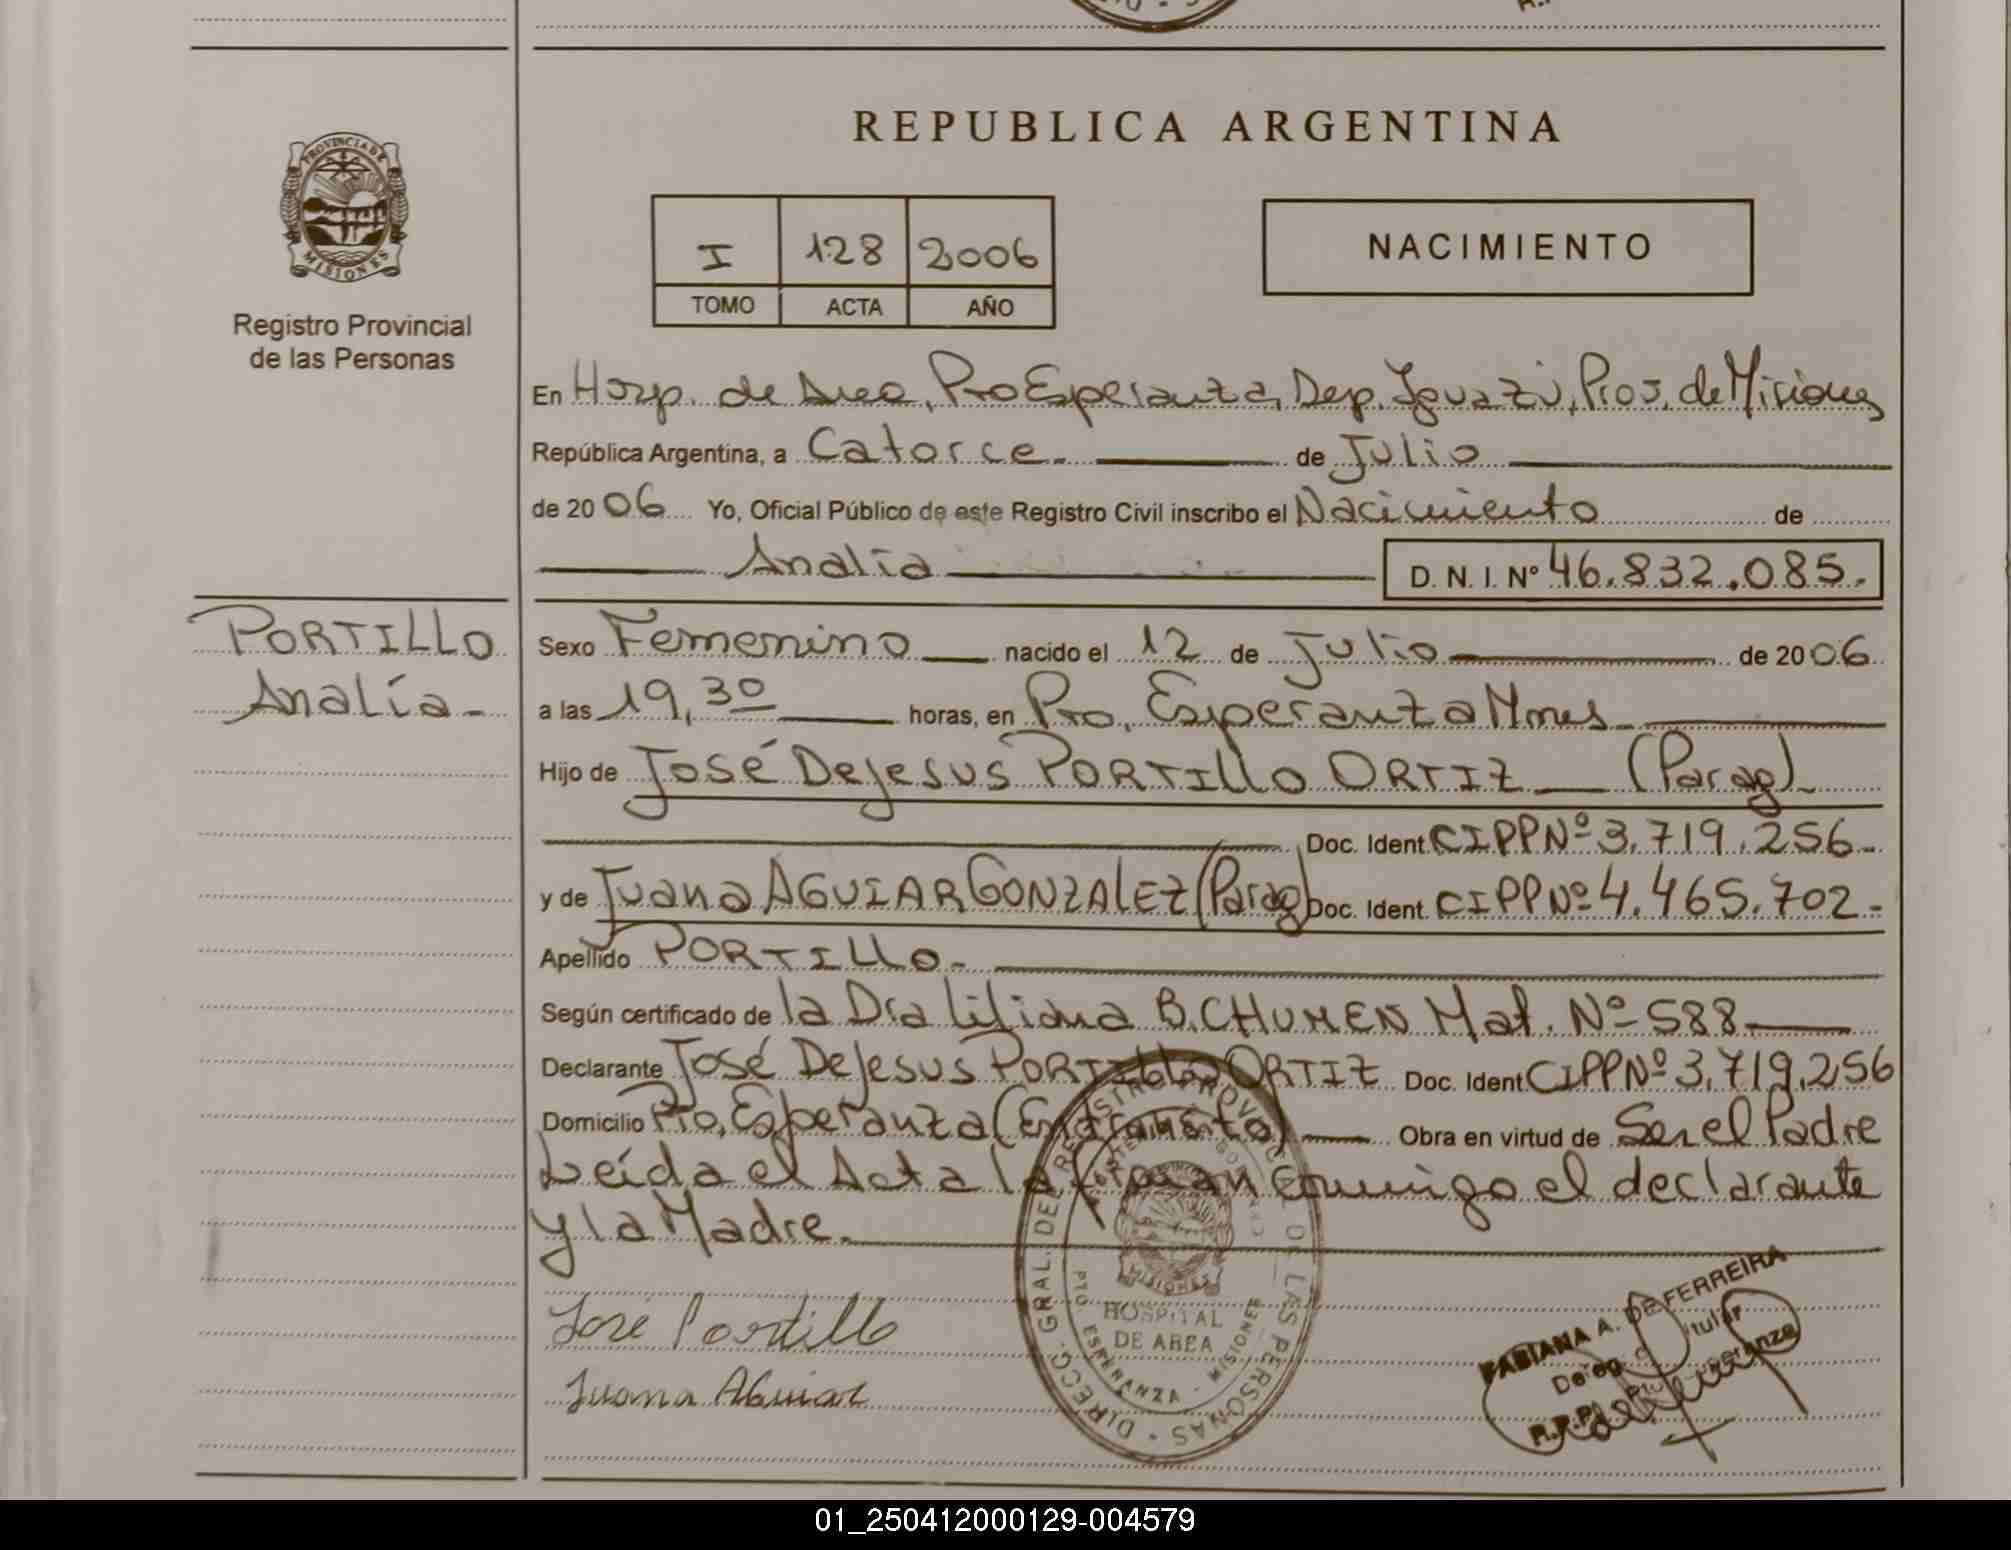 REPUBLICA ARGENTINA
PROVINCIA DE MISIONES
Registro Provincial
de las Personas
I 128 2006
TOMO ACTA AÑO
NACIMIENTO
En Hosp. de Area, Pto Esperanza, Dep. Iguazú, Prov. de Misiones
República Argentina, a Catorce.- de Julio
de 2006 Yo, Oficial Público de este Registro Civil inscribo el Nacimiento de
Analía D. N. I. Nº 46.832.085.
PORTILLO
Analía-
Sexo Femenino nacido el 12 de Julio de 2006
a las 19,30 horas, en Pto. Esperanza Mnes
Hijo de José DeJesus PORTILLO ORTIZ (Parag).
Doc. Ident. CIPPNº 3.719.256-
y de Juana AGUIAR GONZALEZ (Parag) Doc. Ident. CIPPNº 4.465.702-
Apellido PORTILLO-
Según certificado de la Dra Liliana B. CHUMEN Mat. Nº 588
Declarante José DeJesus PORTILLO ORTIZ Doc. Ident. CIPPNº 3.719.256
Domicilio Pto. Esperanza Obra en virtud de Ser el Padre
Leída el Acta la firman conmigo el declarante
y la Madre.
José Portillo
Juana Aguiar
DIRECC. GRAL. DE REGISTRO PROVINCIAL DE LAS PERSONAS
HOSPITAL
DE AREA
PTO ESPERANZA - MISIONES
MISIONES
FABIANA A. DE FERREIRA
Titular
01_250412000129-004579